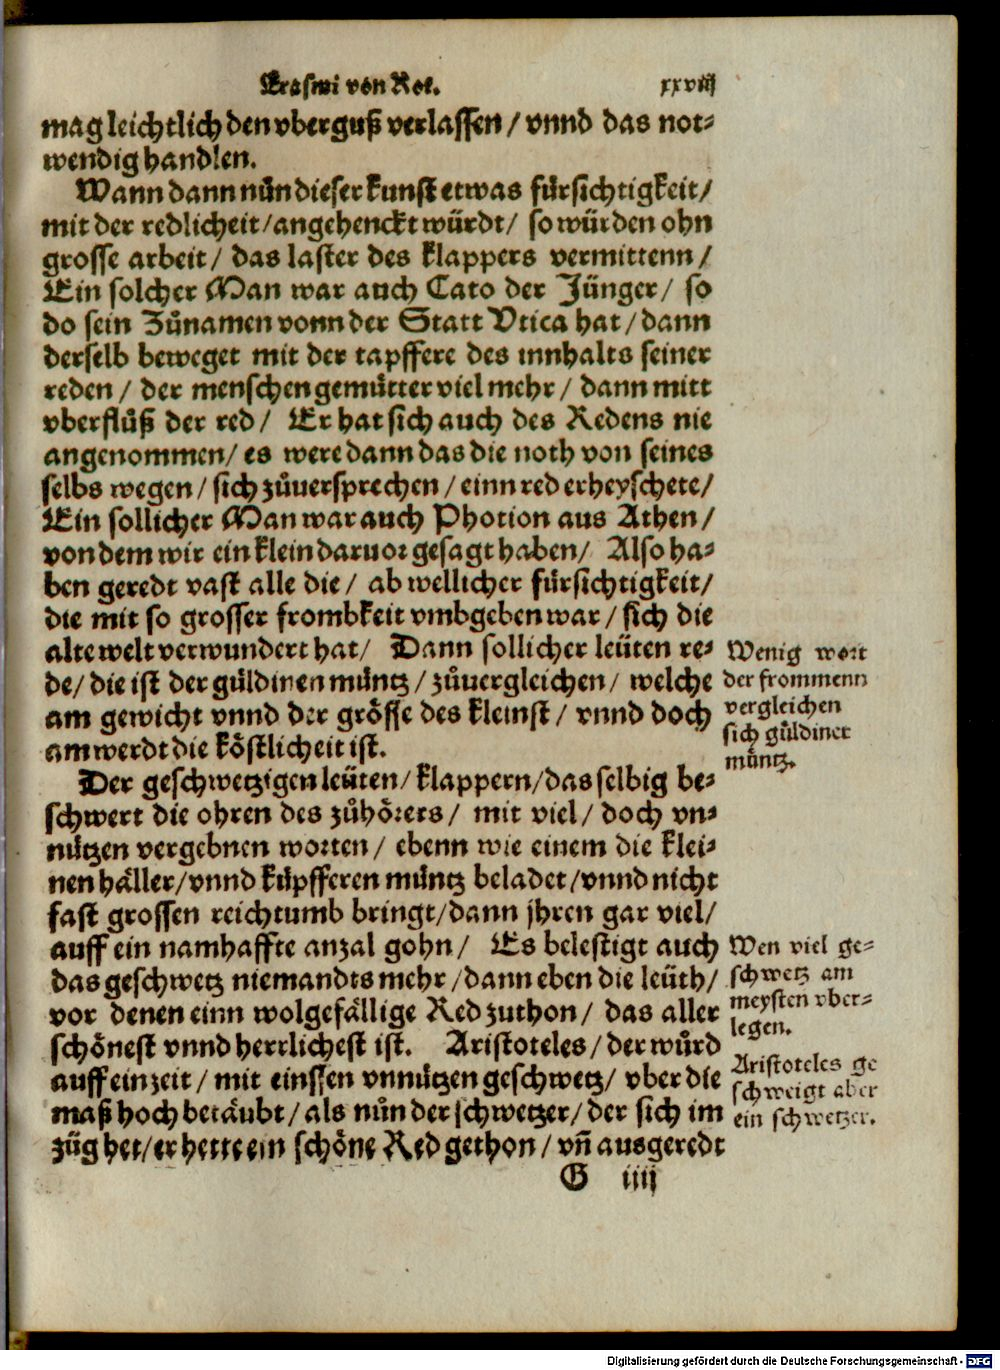 Erasmi von Rot.
xxviij
mag leichtlich den vberguß verlassen / vnnd das not⸗
wendig handlen.
Wann dann nůn dieser kunst etwas fürsichtigkeit /
mit der redlicheit / angehenckt würdt / so würden ohn
grosse arbeit / das laster des klappers vermittenn /
Ein solcher Man war auch Cato der Jünger / so
do sein Zůnamen vonn der Statt Vtica hat / dann
derselb beweget mit der tapffere des innhalts seiner
reden / der menschen gemütter viel mehr / dann mitt
vberflůß der red / Er hat sich auch des Redens nie
angenommen / es were dann das die noth von seines
selbs wegen / sich zůuersprechen / einn red erheyschete /
Ein sollicher Man war auch Photion aus Athen /
von dem wir ein klein daruor gesagt haben / Also ha⸗
ben geredt vast alle die / ab wellicher fürsichtigkeit /
die mit so grosser frombkeit vmbgeben war / sich die
alte welt verwundert hat / Dann sollicher leüten re⸗
de / die ist der güldinen müntz / zůuergleichen / welche
am gewicht vnnd der grösse des kleinst / vnnd doch
am werdt die köstlicheit ist.
Wenig wort
der frommenn
vergleichen
sich güldiner
müntz.
Der geschwetzigen leüten / klappern / das selbig be⸗
schwert die ohren des zůhörers / mit viel / doch vn⸗
nützen vergebnen worten / ebenn wie einem die klei⸗
nen häller / vnnd küpfferen müntz beladet / vnnd nicht
fast grossen reichtumb bringt / dann jhren gar viel /
auff ein namhaffte anzal gohn / Es belestigt auch
das geschwetz niemandts mehr / dann eben die leüth /
vor denen einn wolgefällige Red zuthon / das aller
schönest vnnd herrlichest ist. Aristoteles / der würd
auff ein zeit / mit einssen vnnützen geschwetz / vber die
maß hoch betäubt / als nůn der schwetzer / der sich im
züg het / er hette ein schöne Red gethon / vñ ausgeredt
Wen viel ge⸗
schwetz am
meysten vber⸗
legen.
Aristoteles ge
schweigt aber
ein schwetzer.
G iiij
Digitalisierung gefördert durch die Deutsche Forschungsgemeinschaft - DFG